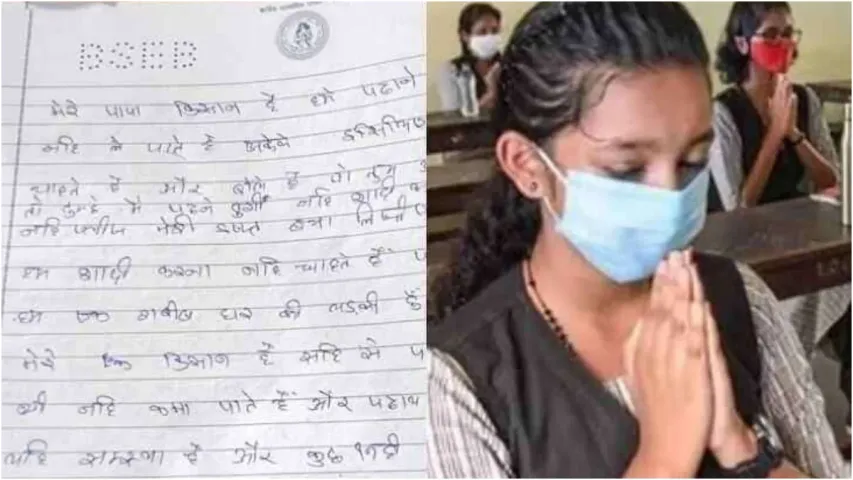 BSEB
मेरे पापा किसान है हमे पढाने
नहि ले पाते है
चाहते है और बोले है तो
तो इन्हे मै पढने दुगी नहि शादी
नहि प्लीज मेरी इज्जत बचा लिजी
हम शादी करना नहि चाहते हैं
हम एक गरीब घर की लड़की हूँ
मेरे किसान है सहि से
भी नहि कमा पाते हैं और पढाय
यहि समस्या है और कुछ नही